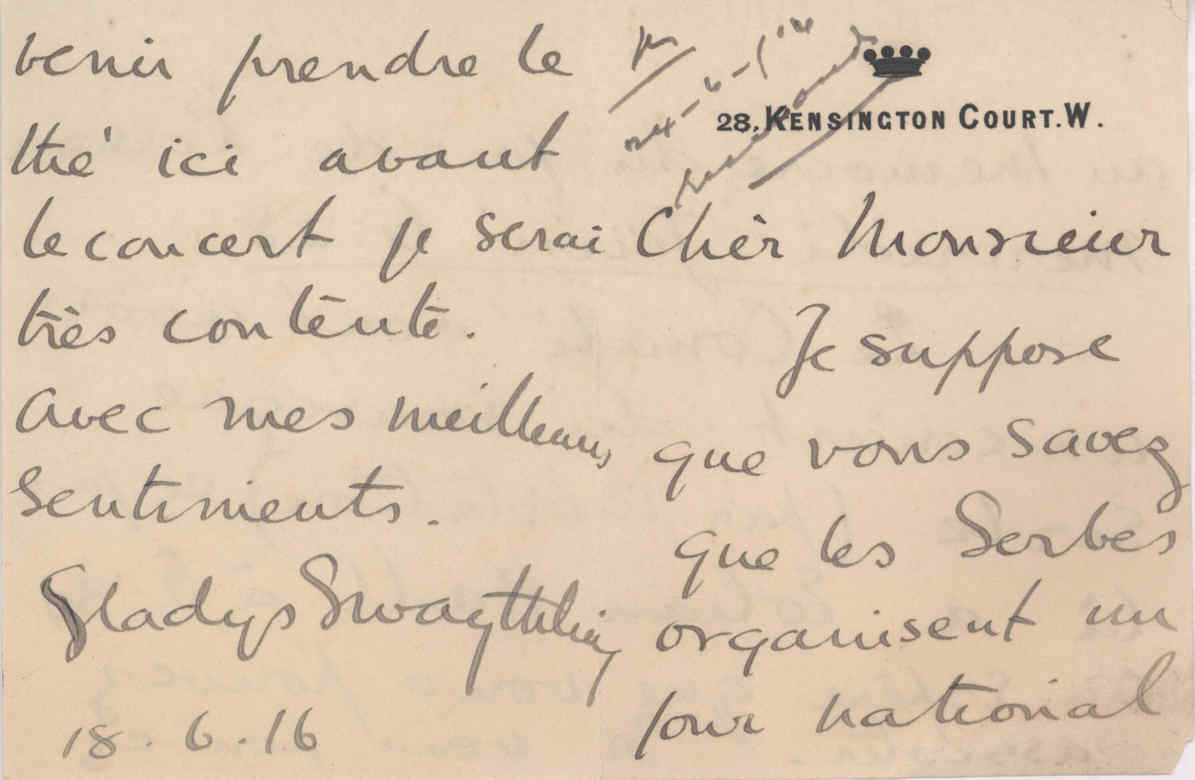 28. KENSINGTON COURT. W.
Chèr Monsieur
Je suppose
que vous savez
que les Serbes
organisent un
jour national
venir prendre le
thé ici avant
le concert je serai
très contente.
avec mes meilleurs
sentiments.
Gladys Swaythling
18.6.16